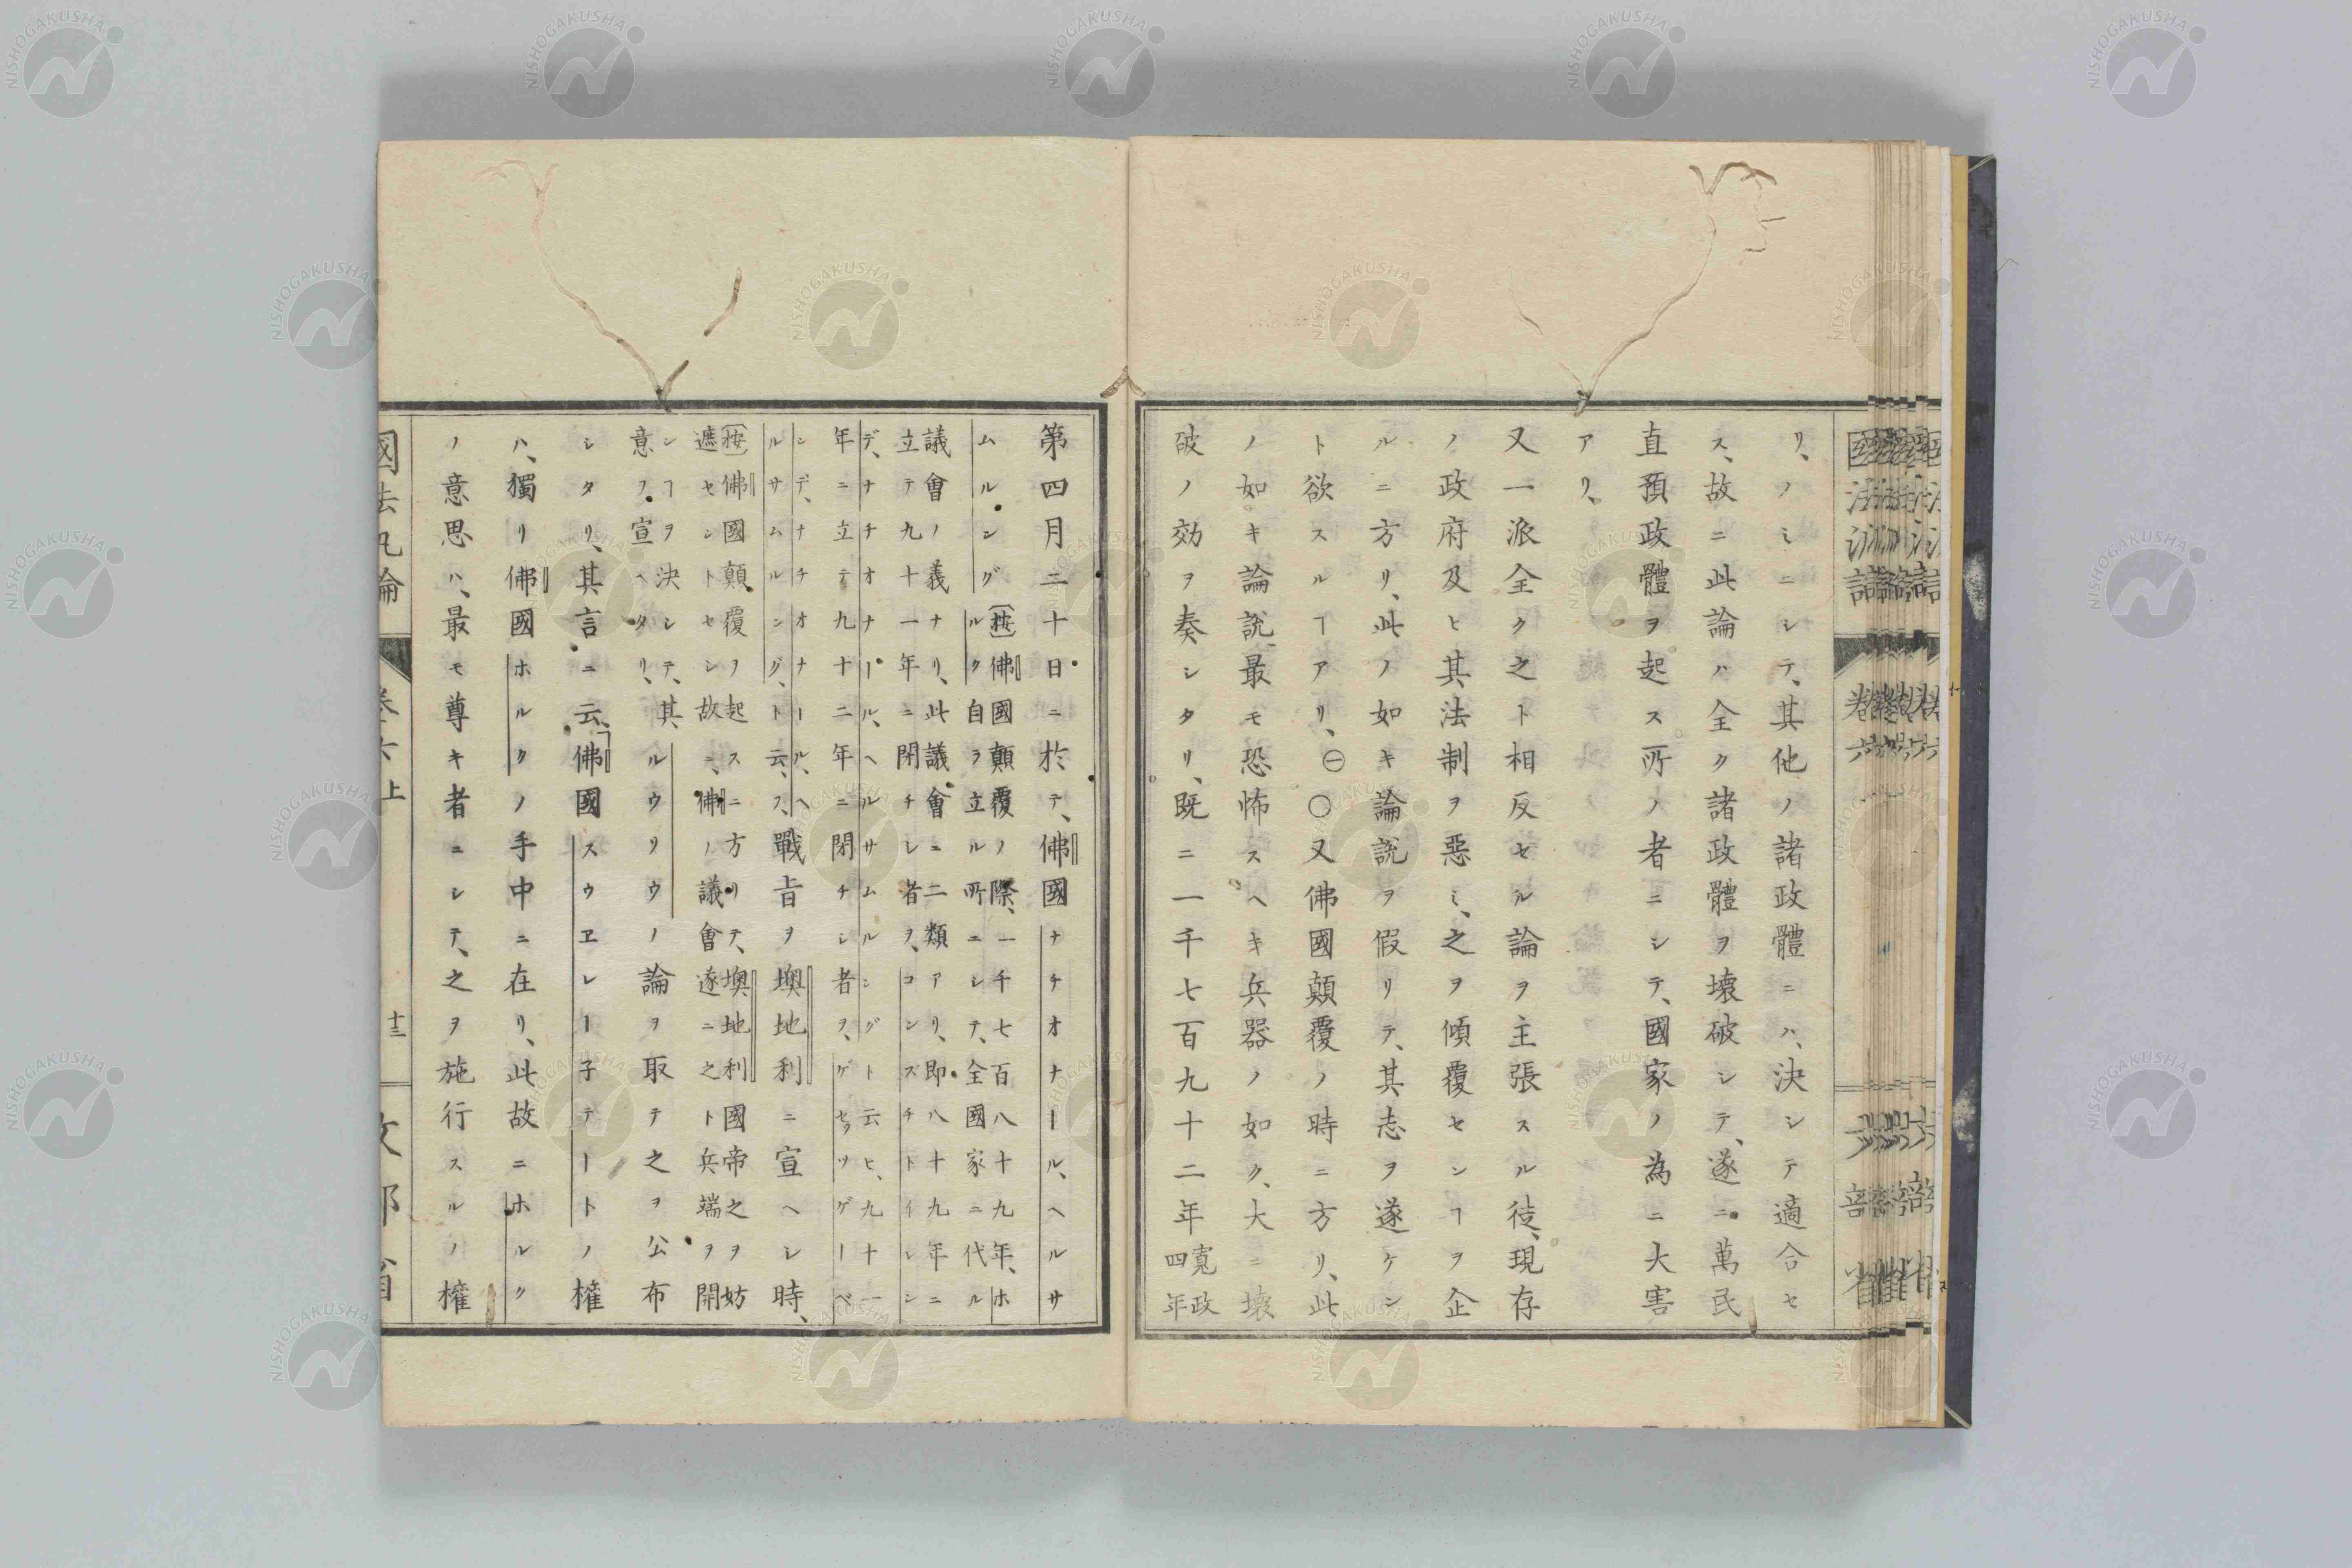 リ、ノミニシテ、其他ノ諸政體ニハ、決シテ適合セ
ス、故ニ此論ハ全ク諸政體ヲ壞破シテ、遂ニ萬民
直預政體ヲ起ス所ノ者ニシテ、國家ノ為ニ大害
アリ、
又一派全ク之ト相反セル論ヲ主張スル徒、現存
ノ政府及ヒ其法制ヲ惡ミ、之ヲ傾覆センヿヲ企
ルニ方リ、此ノ如キ論説ヲ假リテ、其志ヲ遂ケン
ト欲スルヿアリ、㊀〇又佛國顛覆ノ時ニ方リ、此
ノ如キ論説、最モ恐怖スヘキ兵器ノ如ク、大ニ壞
破ノ効ヲ奏シタリ、既ニ一千七百九十二年寛政四年
第四月二十日ニ於テ、佛國ナチオナール、ヘルサ
ムルング(按)佛國顛覆ノ際、一千七百八十九年、ホ
ルク自ヲ立ル所ニシテ、全國家ニ代ル
議會ノ義ナリ、此議會ニ二類アリ、即八十九年ニ
立テ九十一年ニ閉チシ者ヲ、コンスチトイレン
デ、ナチオナール、ヘルサムルングト云ヒ、九十一
年ニ立テ九十二年ニ閉チシ者ヲ、ゲセッツゲーベ
ンデ、ナチオナール、ヘ
ルサムルング、ト云フ、戰旨ヲ墺地利ニ宣ヘシ時、
(按)佛國顛覆ヲ起スニ方リテ、墺地利國帝之ヲ妨
遮セントセシ故ニ、佛ノ議會遂ニ之ト兵端ヲ開
ンヿヲ決シテ、其
意ヲ宣ヘタリ、ルウソウノ論ヲ取テ之ヲ公布
シタリ、其言ニ云、「佛國スウヱレーネテートノ權
ハ、獨リ佛國ホルクノ手中ニ在リ、此故ニホルク
ノ意思ハ、最モ尊キ者ニシテ、之ヲ施行スルノ權
國法汎論
卷六上
十三
文部省